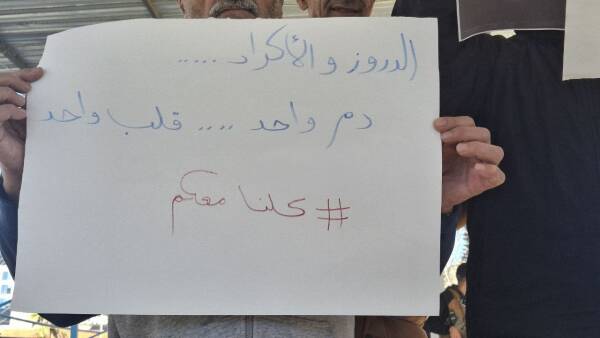 الدروز و الأكراد .....
دم واحد .... قلب واحد
# كلنا معكم